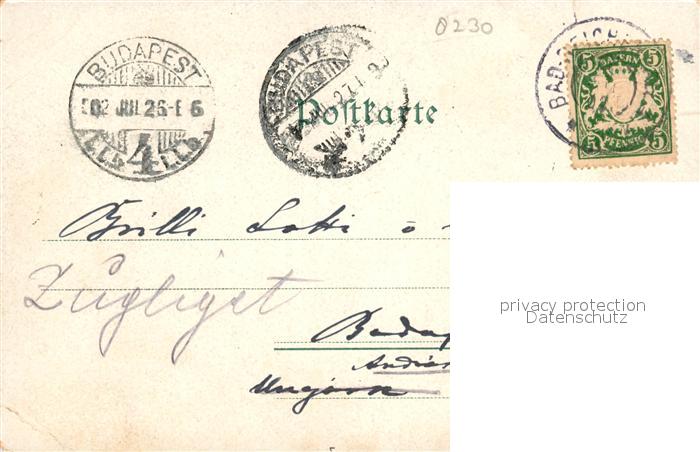 0230
BUDAPEST
902 JUL 26
4
BUDAPEST
Postkarte
BAD REICH
5 BAYERN 5
5 PFENNIG 5
Brilli Lotti ö
Zugliget
Budap
András
Ungarn
privacy protection
Datenschutz